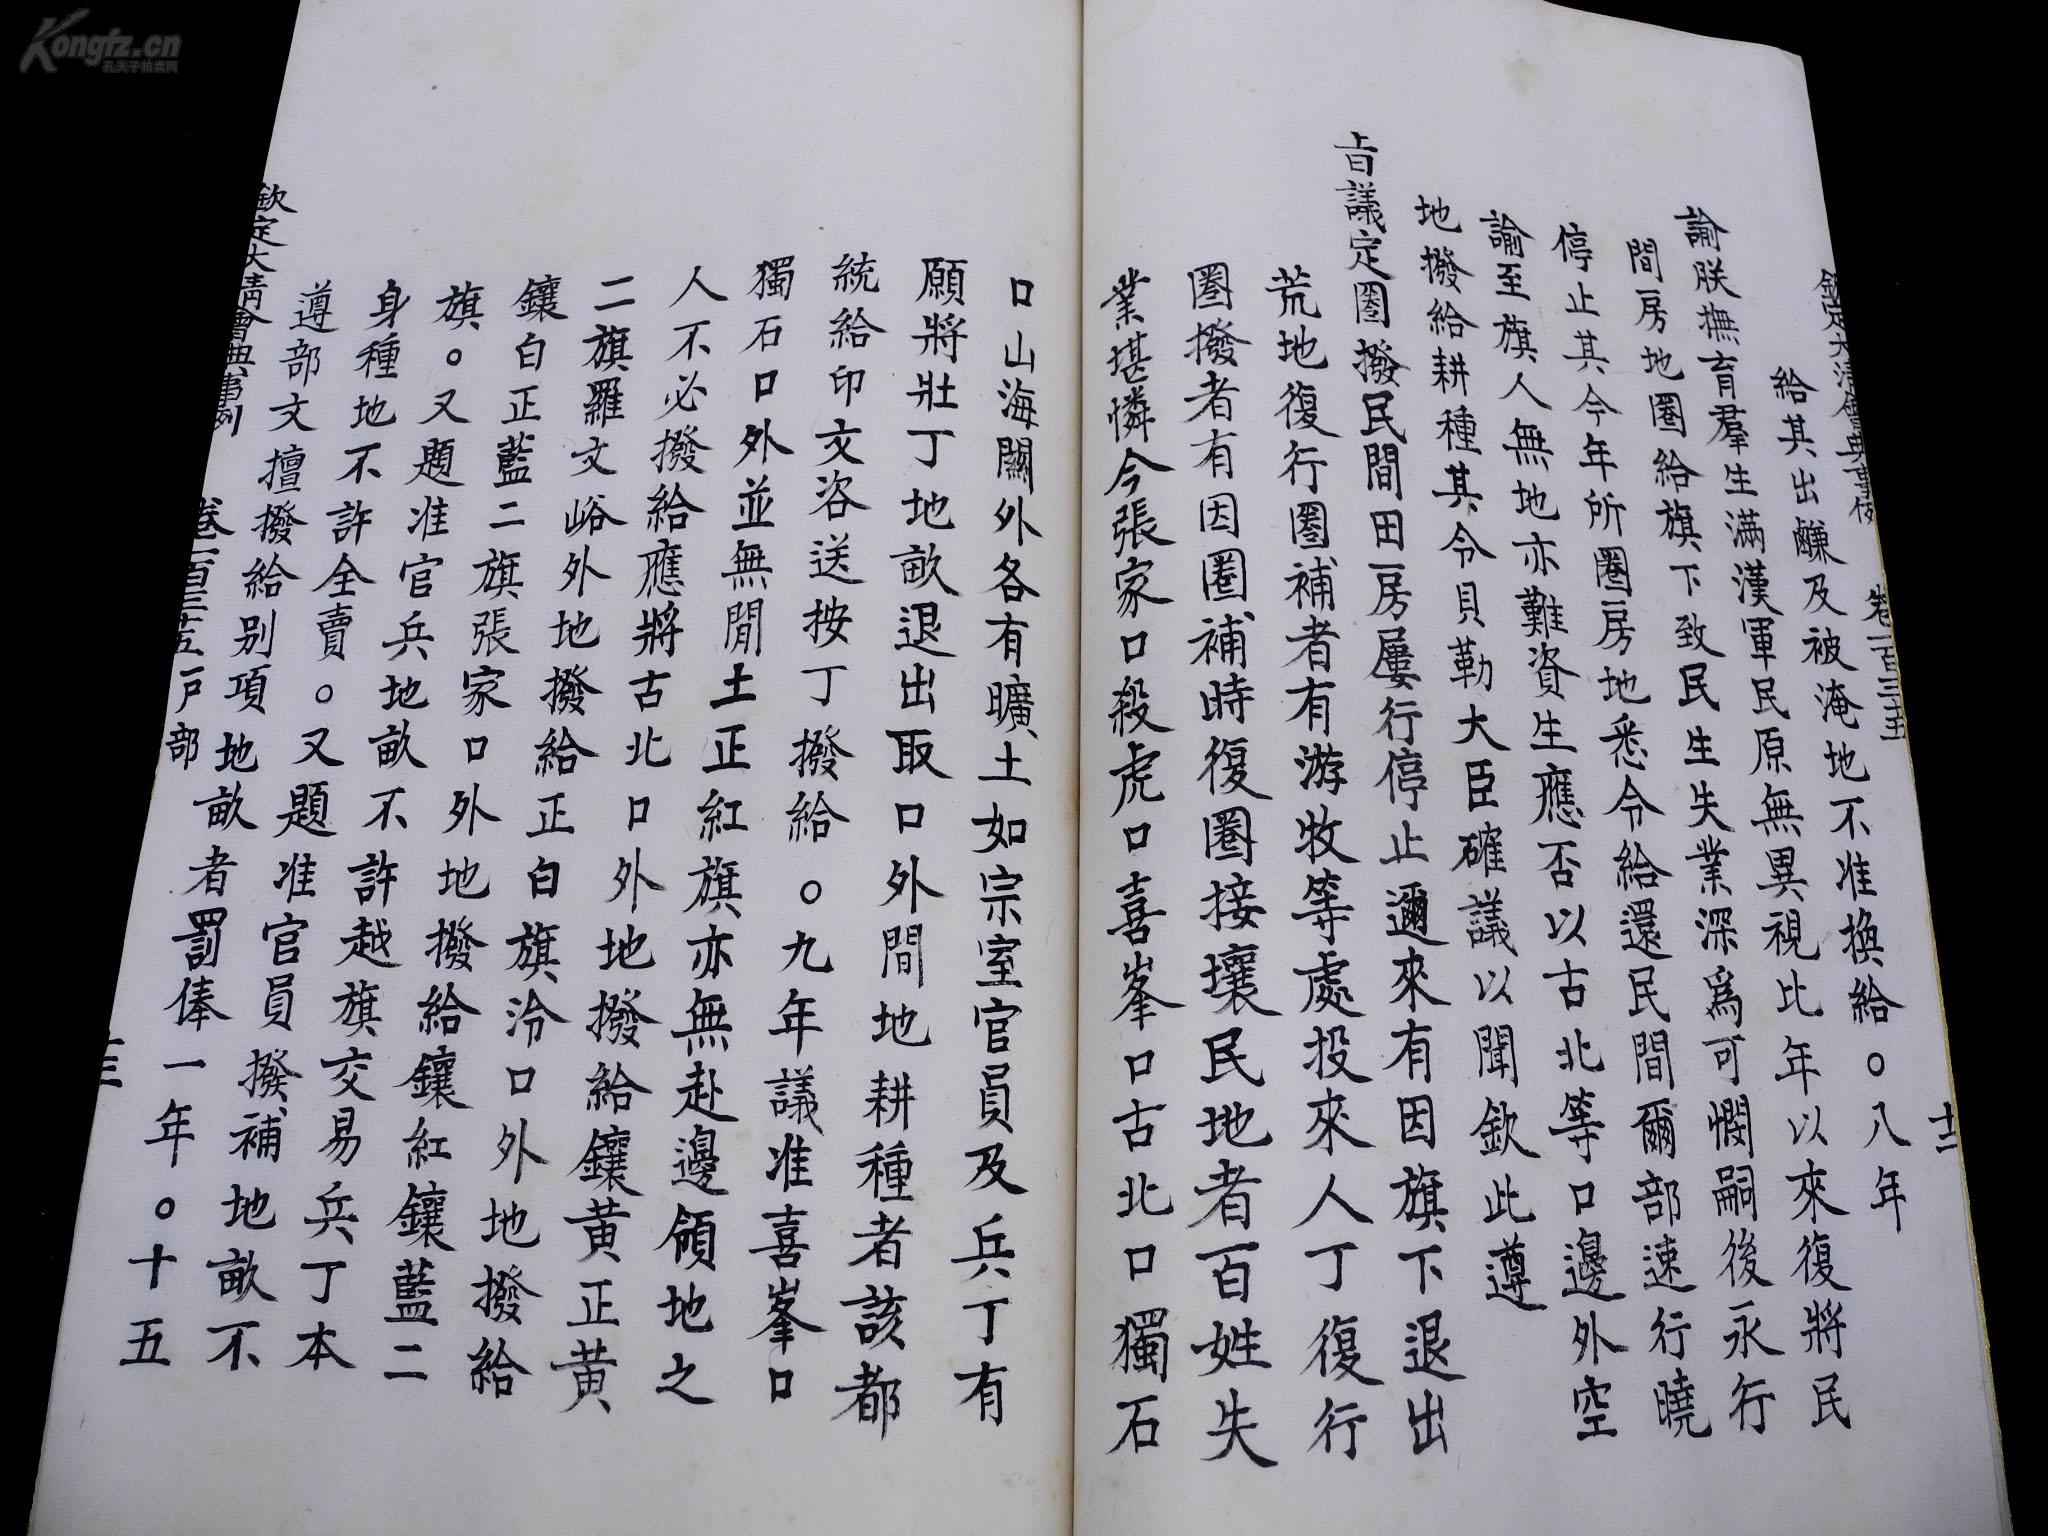 Kongfz.cn
孔夫子拍卖网
欽定大清會典事例 卷一百三十五 十二
給其出鹻及被淹地不准換給。八年
諭朕撫育羣生滿漢軍民原無異視比年以來復將民
間房地圈給旗下致民生失業深爲可憫嗣後永行
停止其今年所圈房地悉令給還民間爾部速行曉
諭至旗人無地亦難資生應否以古北等口邊外空
地撥給耕種其令貝勒大臣確議以聞欽此遵
旨議定圈撥民間田房屢行停止邇來有因旗下退出
荒地復行圈補者有游牧等處投來人丁復行
圈撥者有因圈補時復圈接壤民地者百姓失
業堪憐今張家口殺虎口喜峯口古北口獨石
口山海關外各有曠土如宗室官員及兵丁有
願將壯丁地畝退出取口外閒地耕種者該都
統給印文咨送按丁撥給。九年議准喜峯口
獨石口外並無閒土正紅旗亦無赴邊領地之
人不必撥給應將古北口外地撥給鑲黃正黃
二旗羅文峪外地撥給正白旗泠口外地撥給
鑲白正藍二旗張家口外地撥給鑲紅鑲藍二
旗。又題准官兵地畝不許越旗交易兵丁本
身種地不許全賣。又題准官員撥補地畝不
遵部文擅撥給别項地畝者罰俸一年。十五
欽定大清會典事例 卷一百三十五 戶部 十三